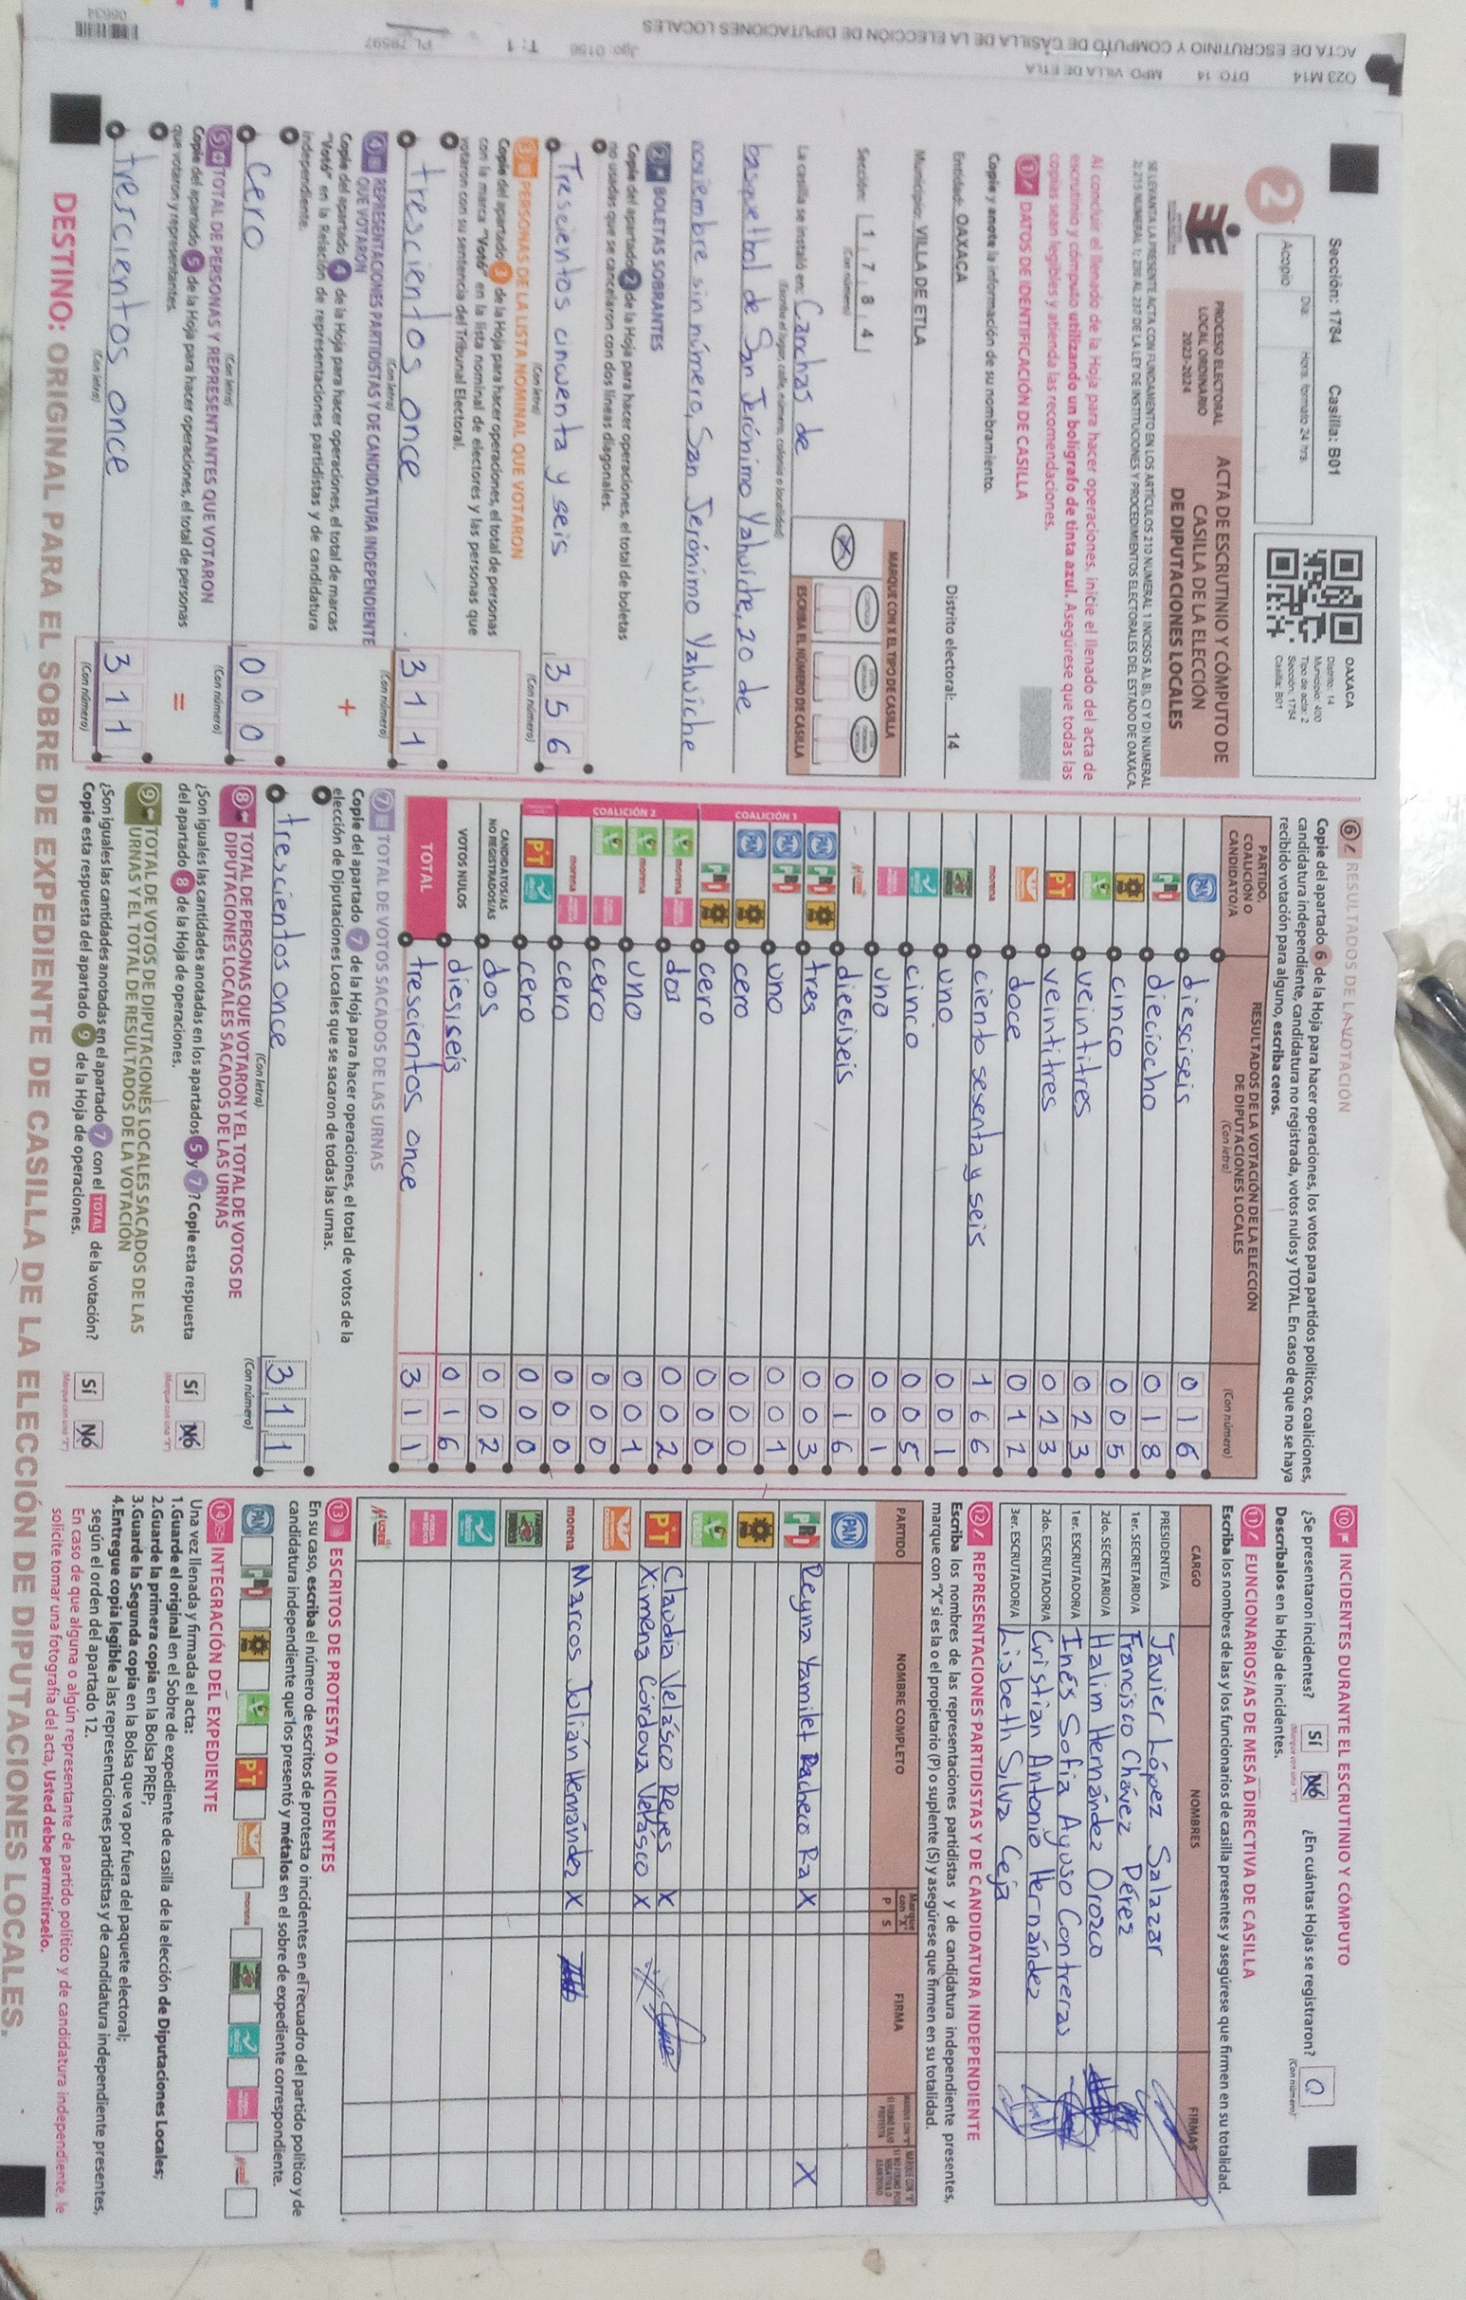 023 M14 DTO 14 MPO VILLA DE ETLA
ACTA DE ESCRUTINIO Y CÓMPUTO DE CASILLA DE LA ELECCIÓN DE DIPUTACIONES LOCALES
Jgo: 0156 T: 1 PL 78597
06634
Sección: 1784 Casilla: B01
2
Acopio
Día:
Hora: formato 24 hrs.
OAXACA
Distrito: 14
Municipio: 400
Tipo de acta: 2
Sección: 1784
Casilla: B01
PROCESO ELECTORAL
LOCAL ORDINARIO
2023-2024
ACTA DE ESCRUTINIO Y CÓMPUTO DE
CASILLA DE LA ELECCIÓN
DE DIPUTACIONES LOCALES
SE LEVANTA LA PRESENTE ACTA CON FUNDAMENTO EN LOS ARTÍCULOS 210 NUMERAL 1 INCISOS A), B), C) Y D) NUMERAL
2; 215 NUMERAL 1; 230 AL 237 DE LA LEY DE INSTITUCIONES Y PROCEDIMIENTOS ELECTORALES DEL ESTADO DE OAXACA.
Al concluir el llenado de la Hoja para hacer operaciones, inicie el llenado del acta de
escrutinio y cómputo utilizando un bolígrafo de tinta azul. Asegúrese que todas las
copias sean legibles y atienda las recomendaciones.
1 DATOS DE IDENTIFICACIÓN DE CASILLA
Copie y anote la información de su nombramiento.
Entidad: OAXACA Distrito electoral: 14
Municipio: VILLA DE ETLA
Sección: 1 7 8 4
(Con número)
MARQUE CON X EL TIPO DE CASILLA
X
ESCRIBA EL NÚMERO DE CASILLA
La casilla se instaló en: Canchas de
(Escriba el lugar, calle, número, colonia o localidad)
basquetbol de San Jerónimo Yahuiche, 20 de
noviembre sin número, San Jerónimo Yahuiche
2 BOLETAS SOBRANTES
Copie del apartado 2 de la Hoja para hacer operaciones, el total de boletas
no usadas que se cancelaron con dos líneas diagonales.
Trescientos cincuenta y seis 3 5 6
(Con letra) (Con número)
3 PERSONAS DE LA LISTA NOMINAL QUE VOTARON
Copie del apartado 3 de la Hoja para hacer operaciones, el total de personas
con la marca "Votó" en la lista nominal de electores y las personas que
votaron con su sentencia del Tribunal Electoral.
trescientos once 3 1 1
(Con letra) (Con número)
4 REPRESENTACIONES PARTIDISTAS Y DE CANDIDATURA INDEPENDIENTE
QUE VOTARON
Copie del apartado 4 de la Hoja para hacer operaciones, el total de marcas
"Votó" en la Relación de representaciones partidistas y de candidatura
independiente.
+
Cero 0 0 0
(Con letra) (Con número)
5 TOTAL DE PERSONAS Y REPRESENTANTES QUE VOTARON
Copie del apartado 5 de la Hoja para hacer operaciones, el total de personas
que votaron y representantes.
=
trescientos once 3 1 1
(Con letra) (Con número)
6 RESULTADOS DE LA VOTACIÓN
Copie del apartado 6 de la Hoja para hacer operaciones, los votos para partidos políticos, coaliciones,
candidatura independiente, candidatura no registrada, votos nulos y TOTAL. En caso de que no se haya
recibido votación para alguno, escriba ceros.
PARTIDO,
COALICIÓN O
CANDIDATO/A
RESULTADOS DE LA VOTACIÓN DE LA ELECCIÓN
DE DIPUTACIONES LOCALES
(Con letra)
(Con número)
PAN diesciseis 0 1 6
PRI dieciocho 0 1 8
cinco 0 0 5
VERDE veintitres 0 2 3
PT veintitres 0 2 3
doce 0 1 2
morena ciento sesenta y seis 1 6 6
uno 0 0 1
cinco 0 0 5
uno 0 0 1
diesiseis 0 1 6
COALICIÓN 1
PAN PRI tres 0 0 3
PAN PRI uno 0 0 1
PAN cero 0 0 0
PRI cero 0 0 0
COALICIÓN 2
VERDE morena dos 0 0 2
VERDE morena uno 0 0 1
VERDE cero 0 0 0
morena cero 0 0 0
PT cero 0 0 0
CANDIDATOS/AS
NO REGISTRADOS/AS dos 0 0 2
VOTOS NULOS diesiseis 0 1 6
TOTAL trescientos once 3 1 1
7 TOTAL DE VOTOS SACADOS DE LAS URNAS
Copie del apartado 7 de la Hoja para hacer operaciones, el total de votos de la
elección de Diputaciones Locales que se sacaron de todas las urnas.
trescientos once 3 1 1
(Con letra) (Con número)
8 TOTAL DE PERSONAS QUE VOTARON Y EL TOTAL DE VOTOS DE
DIPUTACIONES LOCALES SACADOS DE LAS URNAS
¿Son iguales las cantidades anotadas en los apartados 5 y 7? Copie esta respuesta
del apartado 8 de la Hoja de operaciones.
Sí No
9 TOTAL DE VOTOS DE DIPUTACIONES LOCALES SACADOS DE LAS
URNAS Y EL TOTAL DE RESULTADOS DE LA VOTACIÓN
¿Son iguales las cantidades anotadas en el apartado 7 con el TOTAL de la votación?
Copie esta respuesta del apartado 9 de la Hoja de operaciones.
Sí No
10 INCIDENTES DURANTE EL ESCRUTINIO Y CÓMPUTO
¿Se presentaron incidentes? Sí No ¿En cuántas Hojas se registraron? 0
(Con número)
Descríbalos en la Hoja de incidentes.
11 FUNCIONARIOS/AS DE MESA DIRECTIVA DE CASILLA
Escriba los nombres de las y los funcionarios de casilla presentes y asegúrese que firmen en su totalidad.
CARGO NOMBRES FIRMAS
PRESIDENTE/A Javier López Salazar
1er. SECRETARIO/A Francisco Chávez Pérez
2do. SECRETARIO/A Halim Hernández Orozco
1er. ESCRUTADOR/A Inés Sofia Ayuso Contreras
2do. ESCRUTADOR/A Cristian Antonio Hernández
3er. ESCRUTADOR/A Lisbeth Silva Ceja
12 REPRESENTACIONES PARTIDISTAS Y DE CANDIDATURA INDEPENDIENTE
Escriba los nombres de las representaciones partidistas y de candidatura independiente presentes,
marque con "X" si es la o el propietario (P) o suplente (S) y asegúrese que firmen en su totalidad.
PARTIDO NOMBRE COMPLETO Marque con "X" P S FIRMA
PAN
PRI Reyna Yamilet Pacheco Ra X X
VERDE
PT Claudia Velásco Reyes X
Ximena Córdova Velásco X
morena Marcos Julián Hernández X
13 ESCRITOS DE PROTESTA O INCIDENTES
En su caso, escriba el número de escritos de protesta o incidentes en el recuadro del partido político y de
candidatura independiente que los presentó y métalos en el sobre de expediente correspondiente.
PAN PRI VERDE PT morena
14 INTEGRACIÓN DEL EXPEDIENTE
Una vez llenada y firmada el acta:
1.Guarde el original en el Sobre de expediente de casilla de la elección de Diputaciones Locales;
2.Guarde la primera copia en la Bolsa PREP;
3.Guarde la Segunda copia en la Bolsa que va por fuera del paquete electoral;
4.Entregue copia legible a las representaciones partidistas y de candidatura independiente presentes,
según el orden del apartado 12.
En caso de que alguna o algún representante de partido político y de candidatura independiente, le
solicite tomar una fotografía del acta, Usted debe permitírselo.
DESTINO: ORIGINAL PARA EL SOBRE DE EXPEDIENTE DE CASILLA DE LA ELECCIÓN DE DIPUTACIONES LOCALES.